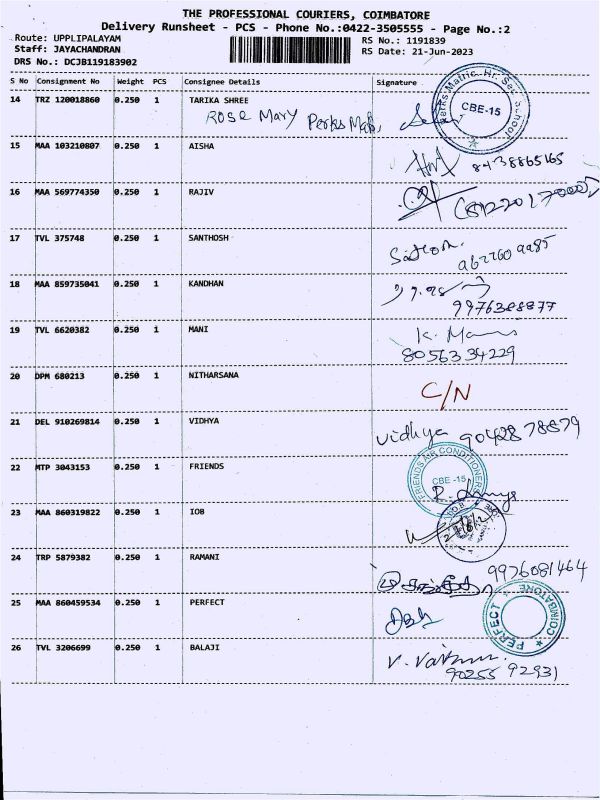 THE PROFESSIONAL COURIERS, COIMBATORE
Delivery Runsheet - PCS - Phone No.:0422-3505555 - Page No.:2
Route: UPPLIPALAYAM
Staff: JAYACHANDRAN
DRS No.: DCJB119183902
RS No.: 1191839
RS Date: 21-Jun-2023
S No Consignment No Weight PCS Consignee Details Signature
14 TRZ 120018860 0.250 1 TARIKA SHREE
Rose Mary Perks
Perks Matric. Hr. Sec. School
CBE-15
15 MAA 103210807 0.250 1 AISHA
8438865165
16 MAA 569774350 0.250 1 RAJIV
17 TVL 375748 0.250 1 SANTHOSH
18 MAA 859735041 0.250 1 KANDHAN
19 TVL 6620382 0.250 1 MANI
K. Mani
8056334229
20 DPM 680213 0.250 1 NITHARSANA
C/N
21 DEL 910269814 0.250 1 VIDHYA
Vidhya 9042878879
22 MTP 3043153 0.250 1 FRIENDS
FRIENDS AIR CONDITIONERS
CBE -15
23 MAA 860319822 0.250 1 IOB
24 TRP 5879382 0.250 1 RAMANI
9976081464
25 MAA 860459534 0.250 1 PERFECT
PERFECT ★ COIMBATORE ★
26 TVL 3206699 0.250 1 BALAJI
90255 92931